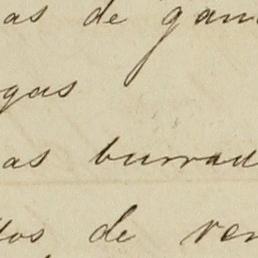 as de gan
gas
as burrad
dos de ven